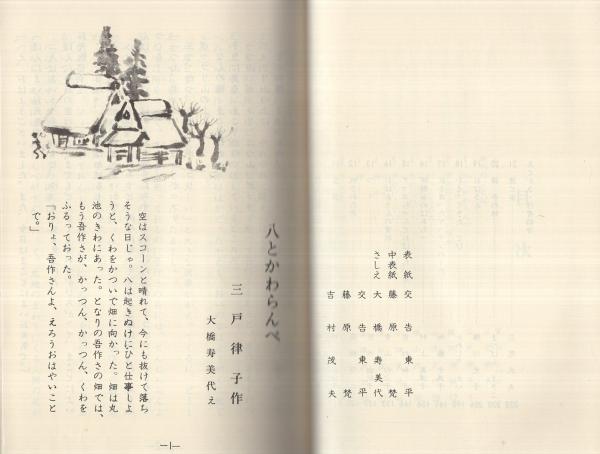 表紙 交告東平
中表紙 藤原梵
さしえ 大橋寿美代
交告東平
藤原梵
吉村茂夫
八とかわらんべ
三戸律子作
大橋寿美代え
空はスコーンと晴れて、今にも抜けて落ち
そうな日じゃ。八は起きぬけにひと仕事しよ
うと、くわをかついで畑に向かった。畑は丸
池のきわにあった。となりの吾作さの畑では、
もう吾作さが、かっつん、かっつん、くわを
ふるっておった。
「おりょ、吾作さんよ、えろうおはやいこと
で。」
—1—